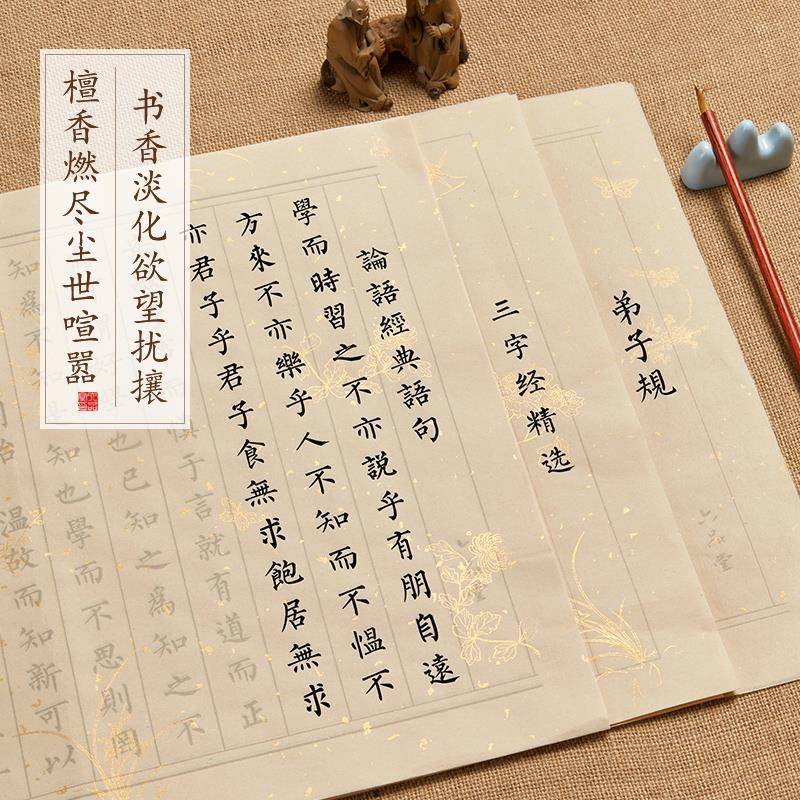 书香淡化欲望扰攘
檀香燃尽尘世喧嚣
弟子規
六品堂
三字经精选
堂
論語經典語句
學而時習之不亦說乎有朋自遠
方來不亦樂乎人不知而不愠不
亦君子乎君子食無求飽居無求
慎于言就有道而正
也已知之為知之不
知也學而不思則罔
殆溫故而知新可以
知為不